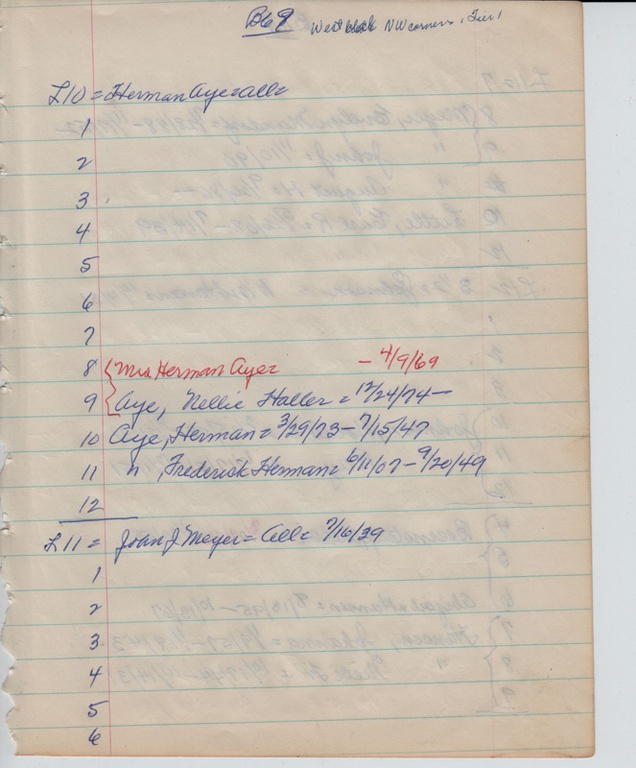 B69 West block NW corner, Tier 1
L10 = Herman Aye = all =
1
2
3
4
5
6
7
8 Mrs Herman Aye = - 4/9/69
9 Aye, Nellie Haller = 12/24/74 -
10 Aye, Herman = 3/29/73 - 7/15/47
11 " , Frederick Herman = 6/11/07 - 9/20/49
12
L11 = John J Meyer = all = 7/16/39
1
2
3
4
5
6